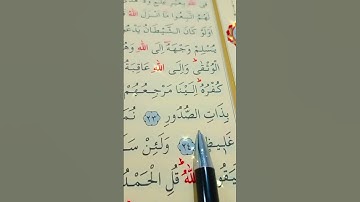 فِى اللّٰهِ بِغَيْرِ
لَهُمُ اتَّبِعُوا مَا اَنْزَلَ اللّٰهُ
اَوَلَوْ كَانَ الشَّيْطَانُ يَدْعُو
يُسْلِمْ وَجْهَهُٓ اِلَى اللّٰهِ وَهُوَ
الْوُثْقٰىۜ وَاِلَى اللّٰهِ عَاقِبَةُ
كُفْرُهُۜ اِلَيْنَا مَرْجِعُهُمْ
بِذَاتِ الصُّدُورِ ﴿٢٣﴾
غَلِيظٍ ﴿٢٤﴾ وَلَئِنْ سَا
اللّٰهُۜ قُلِ الْحَمْدُ